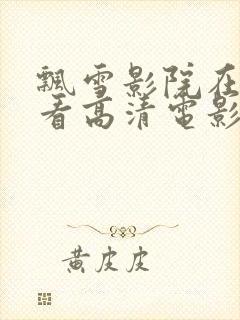 飘雪影院在
看高清電影
黄皮皮